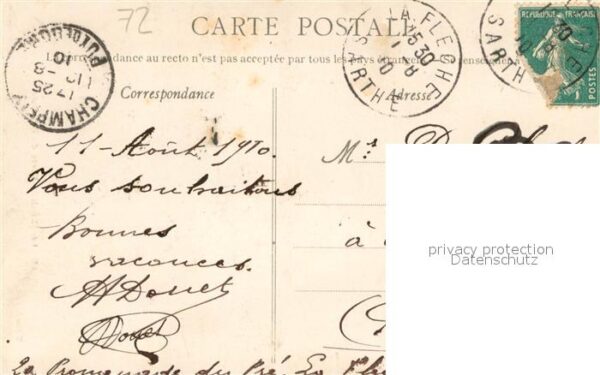 72
CARTE POSTALE
La correspondance au recto n'est pas acceptée par tous les pays étrangers
LA FLÈCHE
15 30
11 - 8
10
SARTHE
LA FLÈCHE
30
SARTHE
RÉPUBLIQUE FRANÇAISE
POSTES
CHAMPEIX
17 25
12 - 8
10
PUY DE DOME
Correspondance
Adresse
11 - Août 1910.
Mr
Vous souhaitons
Bonnes
à
vacances.
ADouet
Douet
La Promenade du Pré. La
privacy protection
Datenschutz